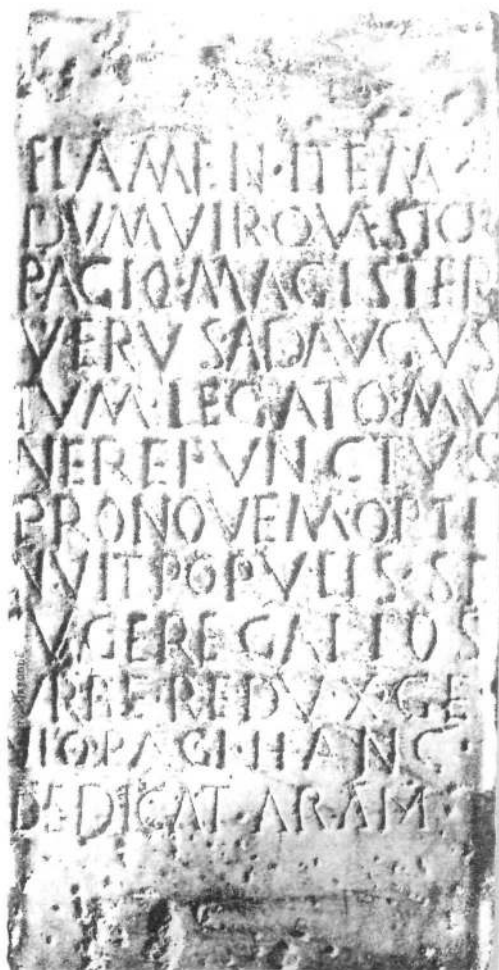 FLAMEN·ITEM
DVMVIR QVAESTOR
PAGIQ·MAGISTER
VERVS AD AVGVS
TVM·LEGATO·MV
NERE FVNCTVS
PRO NOVEM OPTI
NVIT POPVLIS·SE
IVNGERE GALLOS
VRBE·REDVX·GE
NIO·PAGI·HANC·
DEDICAT·ARAM